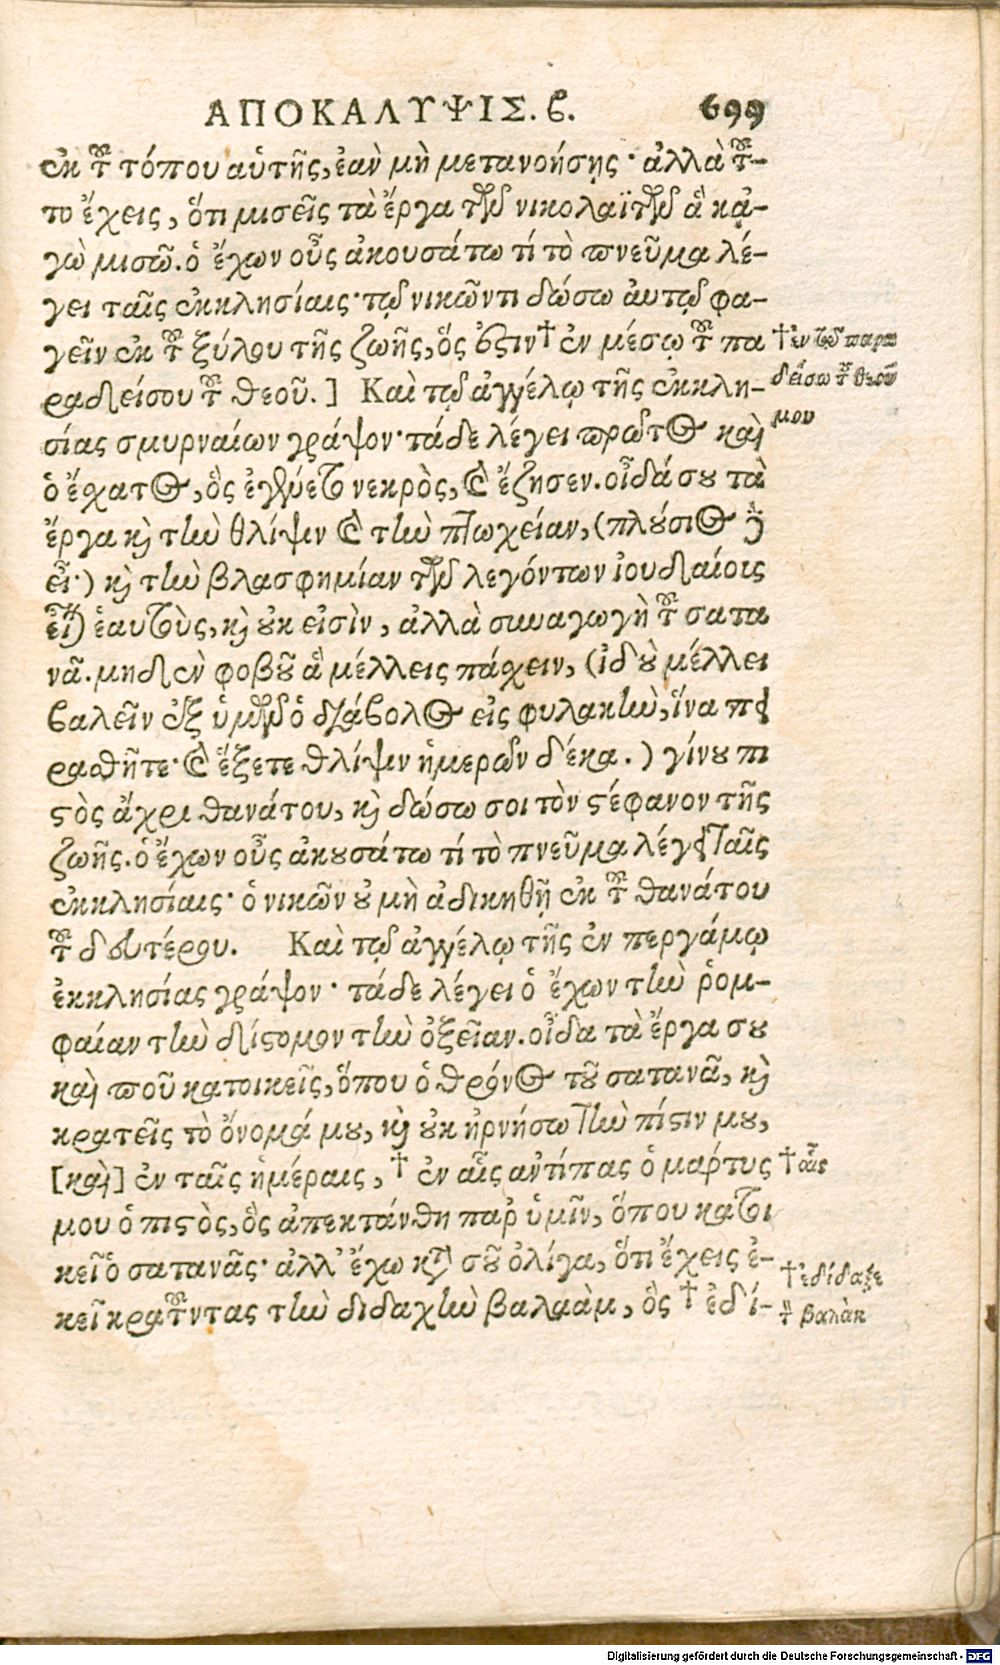 ΑΠΟΚΑΛΥΨΙΣ. ϐ. 699
ἐκ τοῦ τόπου αὐτῆς, ἐαν μὴ μετανοήσῃς· ἀλλὰ τοῦ-
το ἔχεις, ὅτι μισεῖς τὰ ἔργα τῶν νικολαϊτῶν ἃ κᾀ-
γὼ μισῶ. ὁ ἔχων οὖς ἀκουσάτω τί τὸ πνεῦμα λέ-
γει ταῖς ἐκκλησίαις· τῷ νικῶντι δώσω ἀυτῷ φα-
γεῖν ἐκ τοῦ ξύλου τῆς ζωῆς, ὅς ἐστιν † ἐν μέσῳ τοῦ πα
ραδείσου τοῦ θεοῦ. ] Καὶ τῷ ἀγγέλῳ τῆς ἐκκλη-
σίας σμυρναίων γράψον· τάδε λέγει πρῶτος καὶ
ὁ ἔσχατος, ὃς ἐγένετο νεκρὸς, καὶ ἔζησεν. οἶδά σου τὰ
ἔργα καὶ τὴν θλίψιν καὶ τὴν πτωχείαν, (πλούσιος δέ
εἶ·) καὶ τὴν βλασφημίαν τῶν λεγόντων ἰουδαίοις
εἶναι ἑαυτοὺς, καὶ οὐκ εἰσὶν, ἀλλὰ συναγωγὴ τοῦ σατα
νᾶ. μηδὲν φοβοῦ ἃ μέλλεις πάσχειν, (ἰδοὺ μέλλει
βαλεῖν ἐξ ὑμῶν ὁ διάβολος εἰς φυλακὴν, ἵνα πει
ρασθῆτε· καὶ ἕξετε θλίψιν ἡμερῶν δέκα. ) γίνου πι
στὸς ἄχρι θανάτου, καὶ δώσω σοι τὸν στέφανον τῆς
ζωῆς. ὁ ἔχων οὖς ἀκουσάτω τί τὸ πνεῦμα λέγει ταῖς
ἐκκλησίαις· ὁ νικῶν οὐ μὴ ἀδικηθῇ ἐκ τοῦ θανάτου
τοῦ δευτέρου. Καὶ τῷ ἀγγέλῳ τῆς ἐν περγάμῳ
ἐκκλησίας γράψον· τάδε λέγει ὁ ἔχων τὴν ῥομ-
φαίαν τὴν δίστομον τὴν ὀξεῖαν. οἶδα τὰ ἔργα σου
καὶ ποῦ κατοικεῖς, ὅπου ὁ θρόνος τοῦ σατανᾶ, καὶ
κρατεῖς τὸ ὄνομά μου, καὶ οὐκ ἠρνήσω τὴν πίστιν μου,
[καὶ] ἐν ταῖς ἡμέραις, † ἐν αἷς αντίπας ὁ μαρτυς
μου ὁ πιστὸς, ὃς ἀπεκτάνθη παρ ὑμῖν, ὅπου κατοι
κεῖ ὁ σατανᾶς· ἀλλ᾽ ἔχω κατὰ σοῦ ὀλίγα, ὅτι ἔχεις ἐ-
κεῖ κρατοῦντας τὴν διδαχὴν βαλαὰμ, ὃς † ἐδί-
† ἐν τῷ παρα
δείσω τοῦ θεοῦ
μου
† αἷς
† ἐδίδαξε
τὸν βαλὰκ
Digitalisierung gefördert durch die Deutsche Forschungsgemeinschaft - DFG